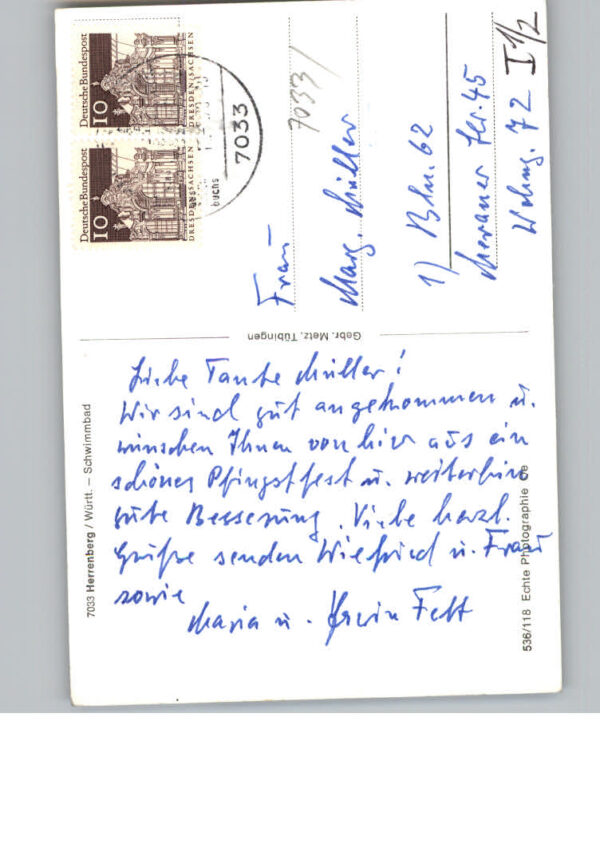 Liebe Tante Müller!
Wir sind gut angekommen u.
wünschen Ihnen von hier aus ein
schönes Pfingstfest u. weiterhin
gute Besserung. Viele herzl.
Grüße senden Wilfried u. Frau
sowie
Maria u. Erwin Fett
Frau
Marg. Müller
1) Bln. 62
Meraner Str. 45
Wohng. 72
I 1/2
7033/
Deutsche Bundespost
10
DRESDEN/SACHSEN
Deutsche Bundespost
10
DRESDEN/SACHSEN
7033
buchs
Gebr. Metz, Tübingen
7033 Herrenberg / Württ. – Schwimmbad
536/118 Echte Photographie